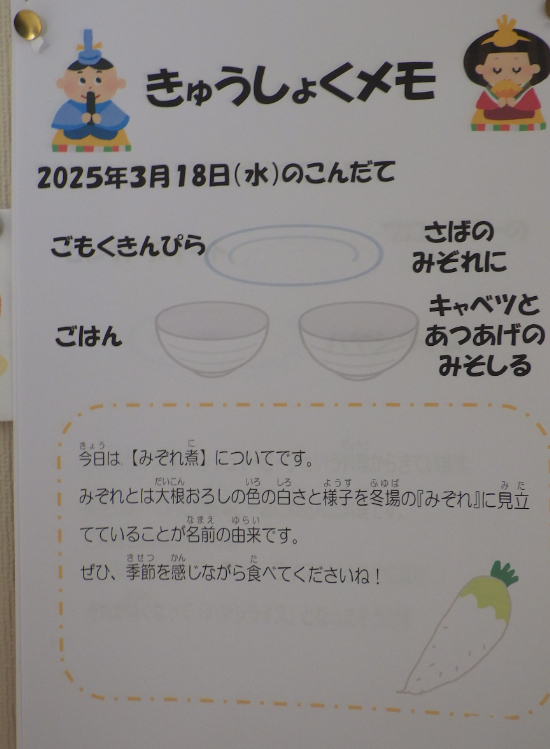 きゅうしょくメモ
2025年3月18日(水)のこんだて
ごもくきんぴら
さばの
みぞれに
ごはん
キャベツと
あつあげの
みそしる
今日は【みぞれ煮】についてです。
みぞれとは大根おろしの色の白さと様子を冬場の『みぞれ』に見立
てていることが名前の由来です。
ぜひ、季節を感じながら食べてくださいね！